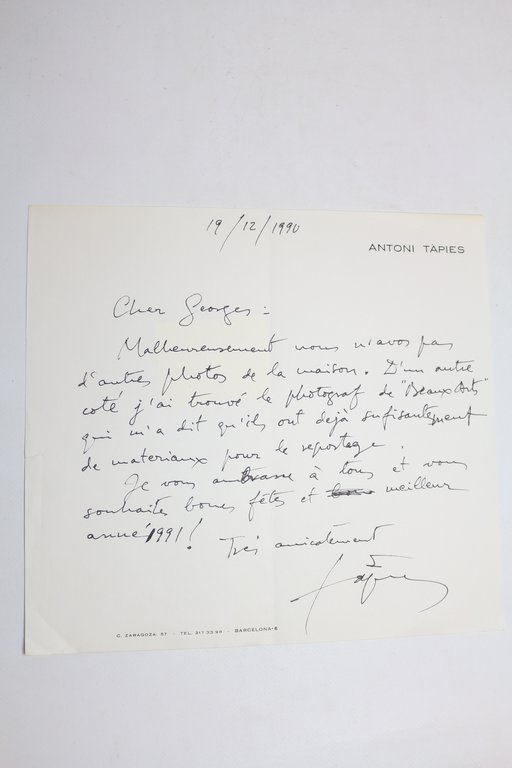 19/12/1990
ANTONI TÀPIES
Cher Georges :
Malheureusement nous n'avos pas
d'autres photos de la maison. D'un autre
coté j'ai trouvé le photograf de "Beaux Arts"
qui m'a dit qu'ils ont dejà sufisantement
de materiaux pour le reportage.
Je vous ambrasse à tous et vous
souhaites bones fêtes et meilleur
anné 1991!
Très amicalement
Tàpies
C. ZARAGOZA, 57 - TEL. 217 33 98 - BARCELONA-6